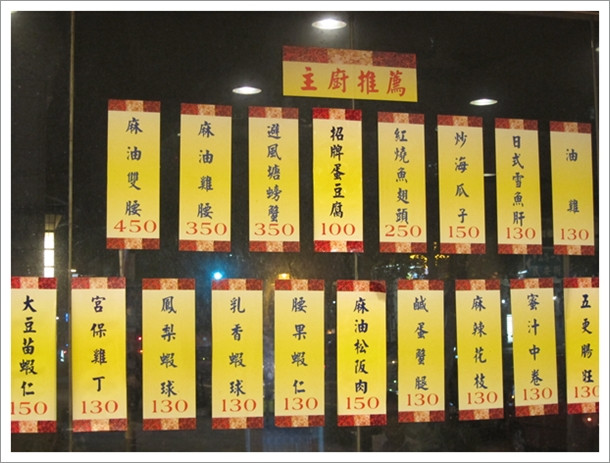 主廚推薦
麻油雙腰
450
麻油雞腰
350
避風塘螃蟹
350
招牌蛋豆腐
100
紅燒魚翅頭
250
炒海瓜子
150
日式雪魚肝
130
油雞
130
大豆苗蝦仁
150
宮保雞丁
130
鳳梨蝦球
130
乳香蝦球
130
腰果蝦仁
130
麻油松阪肉
150
鹹蛋蟹腿
130
麻辣花枝
130
蜜汁中卷
130
五更腸旺
130